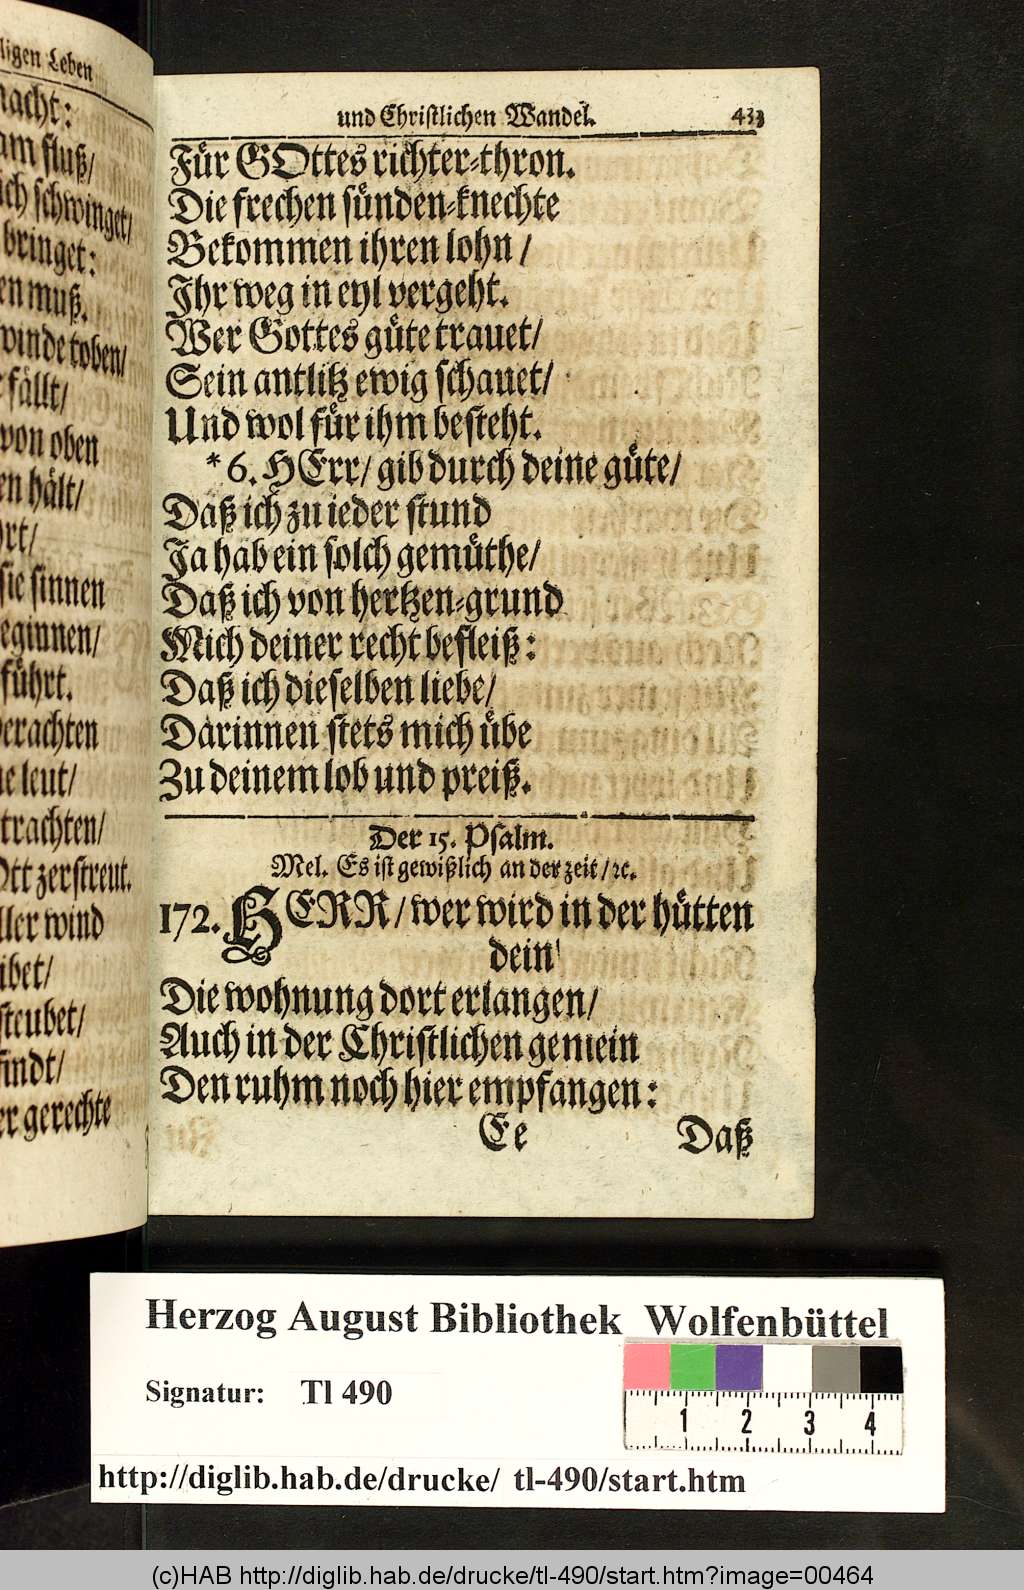 ligen Leben
nacht:
am fluß/
ich schwinget/
bringet:
en muß.
winde toben/
fällt/
von oben
en hält/
ort/
sie sinnen
eginnen/
führt.
erachten
ne leut/
trachten/
Ott zerstreut.
ller wind
ibet/
steubet/
findt/
er gerechte
und Christlichen Wandel. 433
Für GOttes richter-thron.
Die frechen sünden-knechte
Bekommen ihren lohn /
Ihr weg in eyl vergeht.
Wer Gottes güte trauet/
Sein antlitz ewig schauet/
Und wol für ihm besteht.
* 6. HErr/ gib durch deine güte/
Daß ich zu ieder stund
Ja hab ein solch gemüthe/
Daß ich von hertzen-grund
Mich deiner recht befleiß:
Daß ich dieselben liebe/
Darinnen stets mich übe
Zu deinem lob und preiß.
Der 15. Psalm.
Mel. Es ist gewißlich an der zeit /ꝛc.
172. HERR / wer wird in der hütten
dein
Die wohnung dort erlangen/
Auch in der Christlichen gemein
Den ruhm noch hier empfangen:
Ee Daß
Herzog August Bibliothek Wolfenbüttel
Signatur: Tl 490
1 2 3 4
http://diglib.hab.de/drucke/ tl-490/start.htm
(c)HAB http://diglib.hab.de/drucke/tl-490/start.htm?image=00464